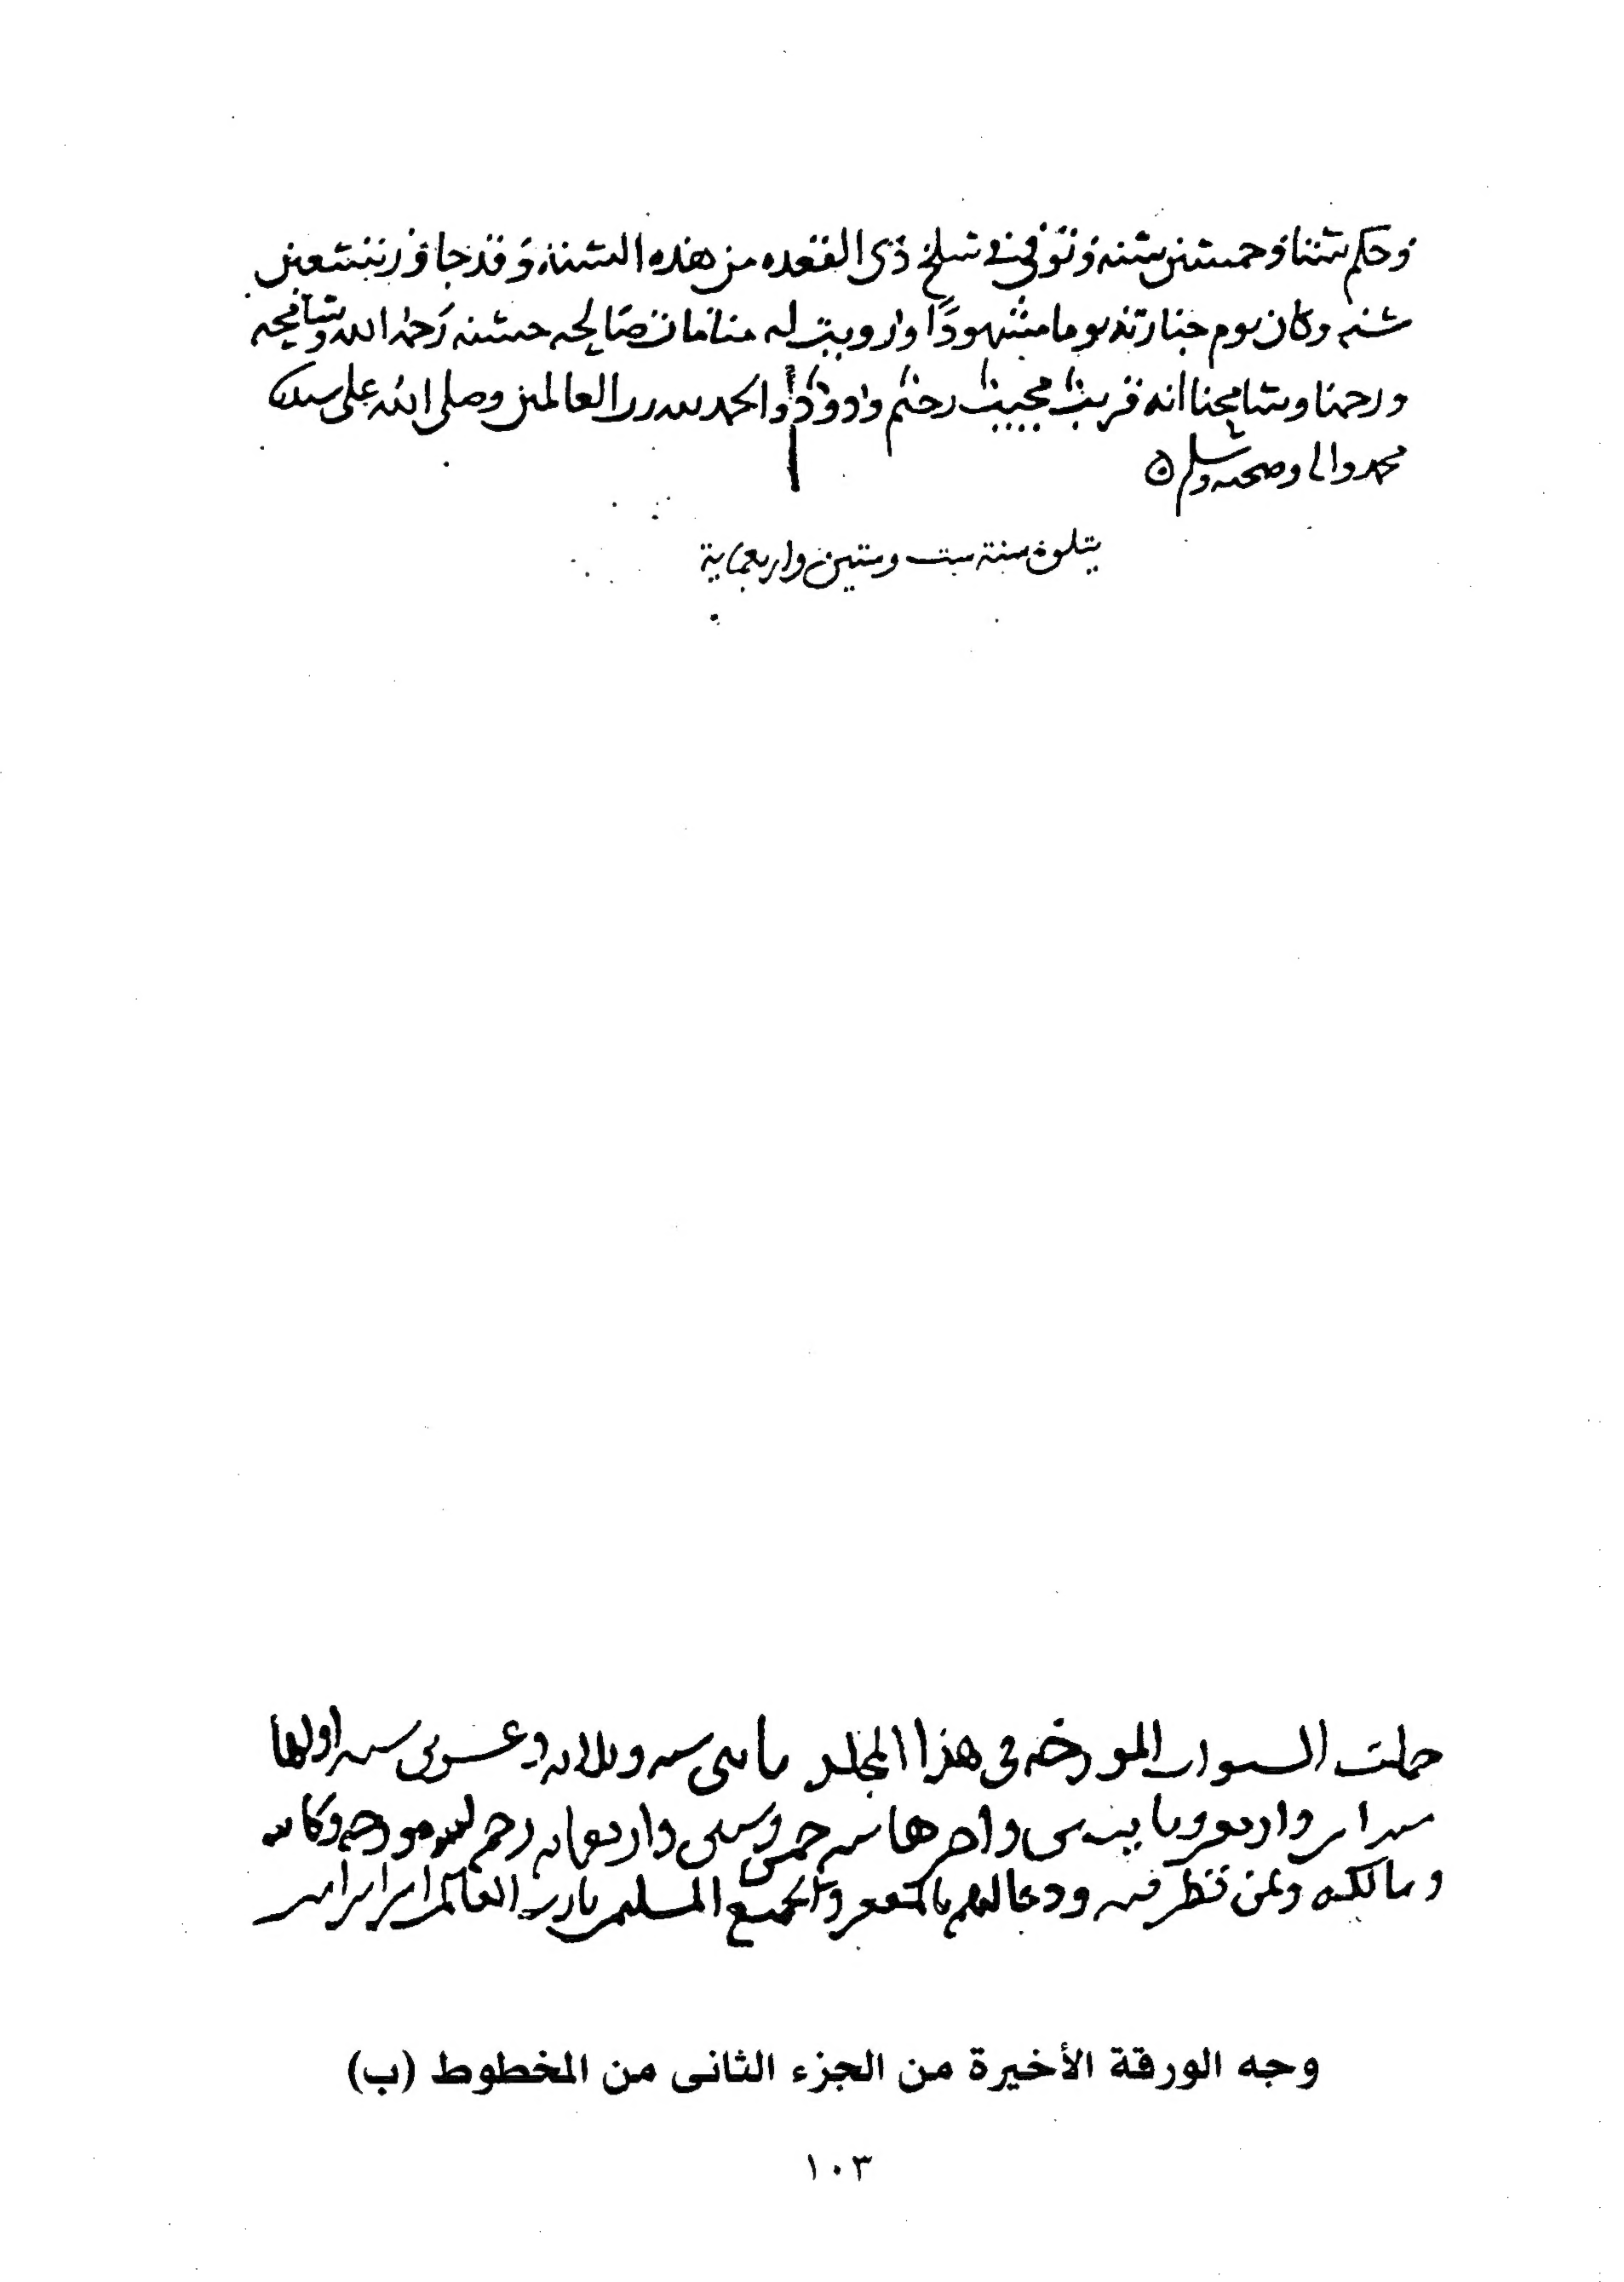 وحكم ستا وخمسين سنه وتوفي في سلخ ذى القعده من هذه السنه وقد جاوز تسعين
سنه وكان يوم جنازته يوما مشهودًا ورويت له منامات صالحه حسنه رحمه الله وسامحه
ورحمنا وسامحنا انه قريب مجيب رحيم ودود والحمد لله رب العالمين وصلى الله على سيدنا
محمد واله وصحبه وسلم
يتلوه سنة ست وستين واربعماية
جملت السنوات المورخه فى هذا المجلد مايتى سنه وثلاثه وعشرين سنه اولها
سنه واربعين ومايتين واخرها سنه خمس وستين واربعمايه رحم الله مورخه وكاتبه
ومالكه ولمن نظر فيه ودعا لهم بالمغفره ولجميع المسلمين يا رب العالمين امين امين امين
وجه الورقة الأخيرة من الجزء الثانى من المخطوط (ب)
١٠٣